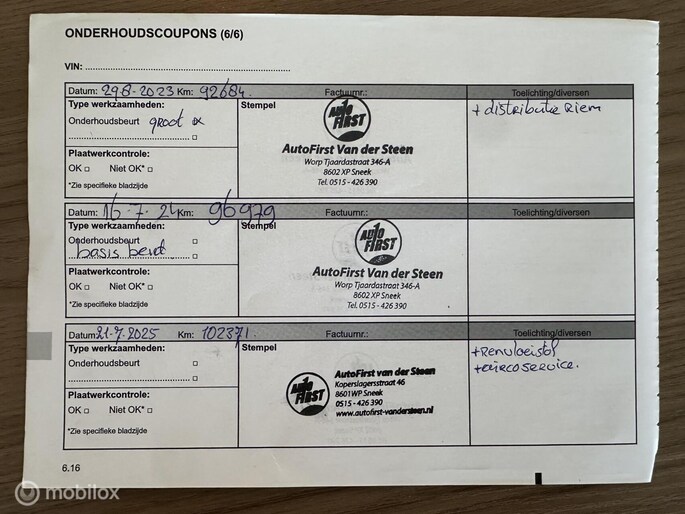 ONDERHOUDSCOUPONS (6/6)
VIN:
Datum: 29-8-2023 Km: 92684. Factuurnr.: Toelichting/diversen
Type werkzaamheden: Stempel + distributie Riem
Onderhoudsbeurt groot
AUTO FIRST
AutoFirst Van der Steen
Plaatwerkcontrole: Worp Tjaardastraat 346-A
OK Niet OK* 8602 XP Sneek
*Zie specifieke bladzijde Tel. 0515 - 426 390
Datum: 16-7-24 Km: 96979 Factuurnr.: Toelichting/diversen
Type werkzaamheden: Stempel
Onderhoudsbeurt
basis beurt
AUTO FIRST
AutoFirst Van der Steen
Plaatwerkcontrole: Worp Tjaardastraat 346-A
OK Niet OK* 8602 XP Sneek
*Zie specifieke bladzijde Tel. 0515 - 426 390
Datum: 21-7-2025 Km: 102371. Factuurnr.: Toelichting/diversen
Type werkzaamheden: Stempel + Remvloeistof
Onderhoudsbeurt + aircoservice.
AUTO FIRST
AutoFirst van der Steen
Koperslagersstraat 46
Plaatwerkcontrole: 8601WP Sneek
OK Niet OK* 0515 - 426 390
www.autofirst-vandersteen.nl
*Zie specifieke bladzijde
6.16
mobilox